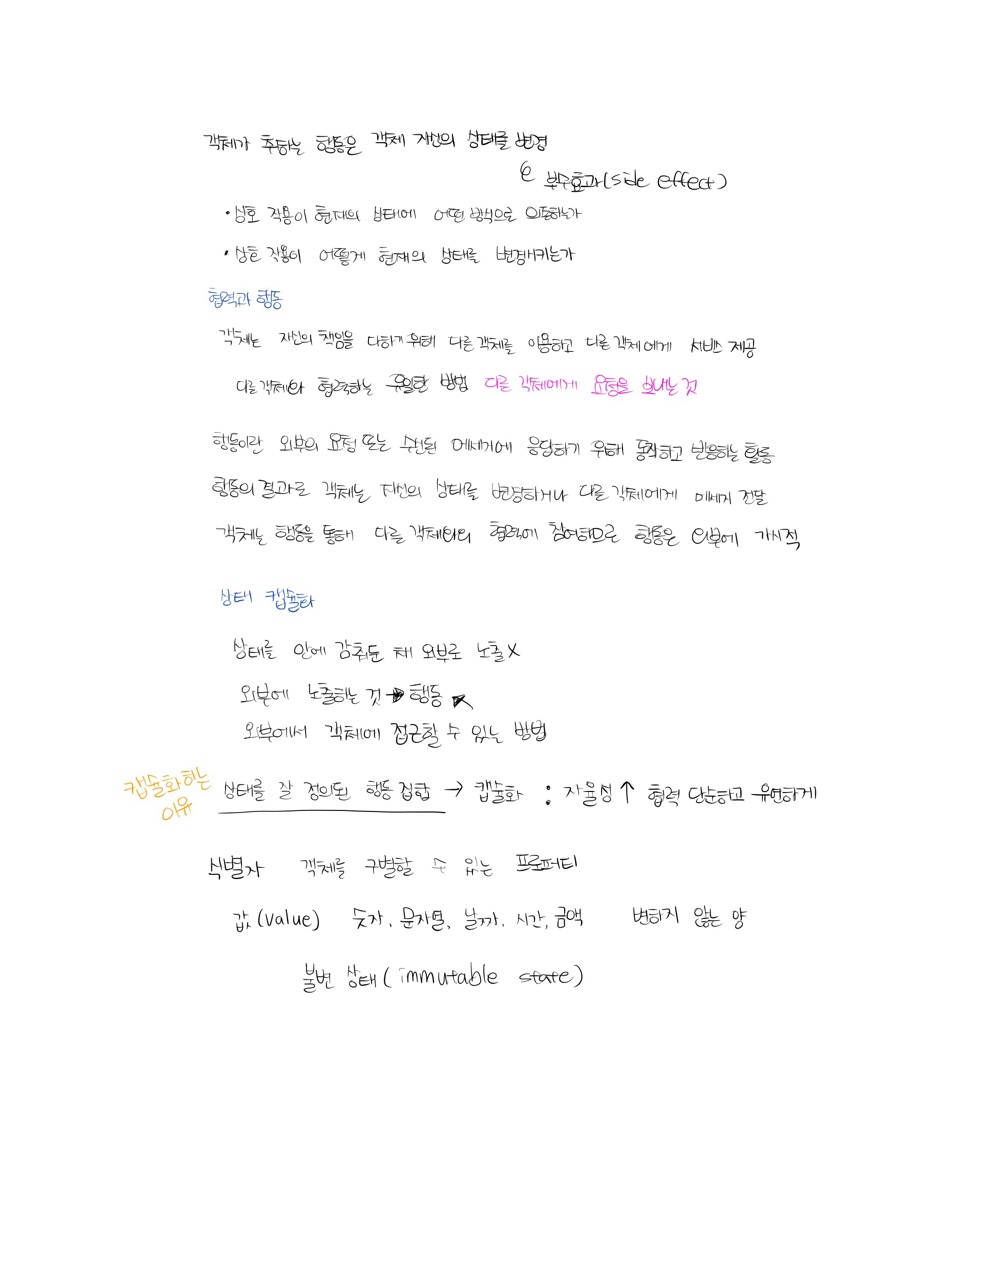 객체가 취하는 행동은 객체 자신의 상태를 변경
부수효과(side effect)
· 상호 작용이 현재의 상태에 어떤 방식으로 의존하는가
· 상호 작용이 어떻게 현재의 상태를 변경시키는가
협력과 행동
객체는 자신의 책임을 다하기 위해 다른 객체를 이용하고 다른 객체에게 서비스 제공
다른 객체와 협력하는 유일한 방법 다른 객체에게 요청을 보내는 것
행동이란 외부의 요청 또는 수신된 메세지에 응답하기 위해 동작하고 반응하는 활동
행동의 결과로 객체는 자신의 상태를 변경하거나 다른 객체에게 메세지 전달
객체는 행동을 통해 다른 객체와의 협력에 참여하므로 행동은 외부에 가시적
상태 캡슐화
상태를 안에 감춰둔 채 외부로 노출 X
외부에 노출하는 것 → 행동 ↖
외부에서 객체에 접근할 수 있는 방법
캡슐화하는 이유
상태를 잘 정의된 행동 집합 → 캡슐화 : 자율성 ↑ 협력 단순하고 유연하게
식별자 객체를 구별할 수 있는 프로퍼티
값(value) 숫자, 문자열, 날짜, 시간, 금액 변하지 않는 양
불변 상태(immutable state)